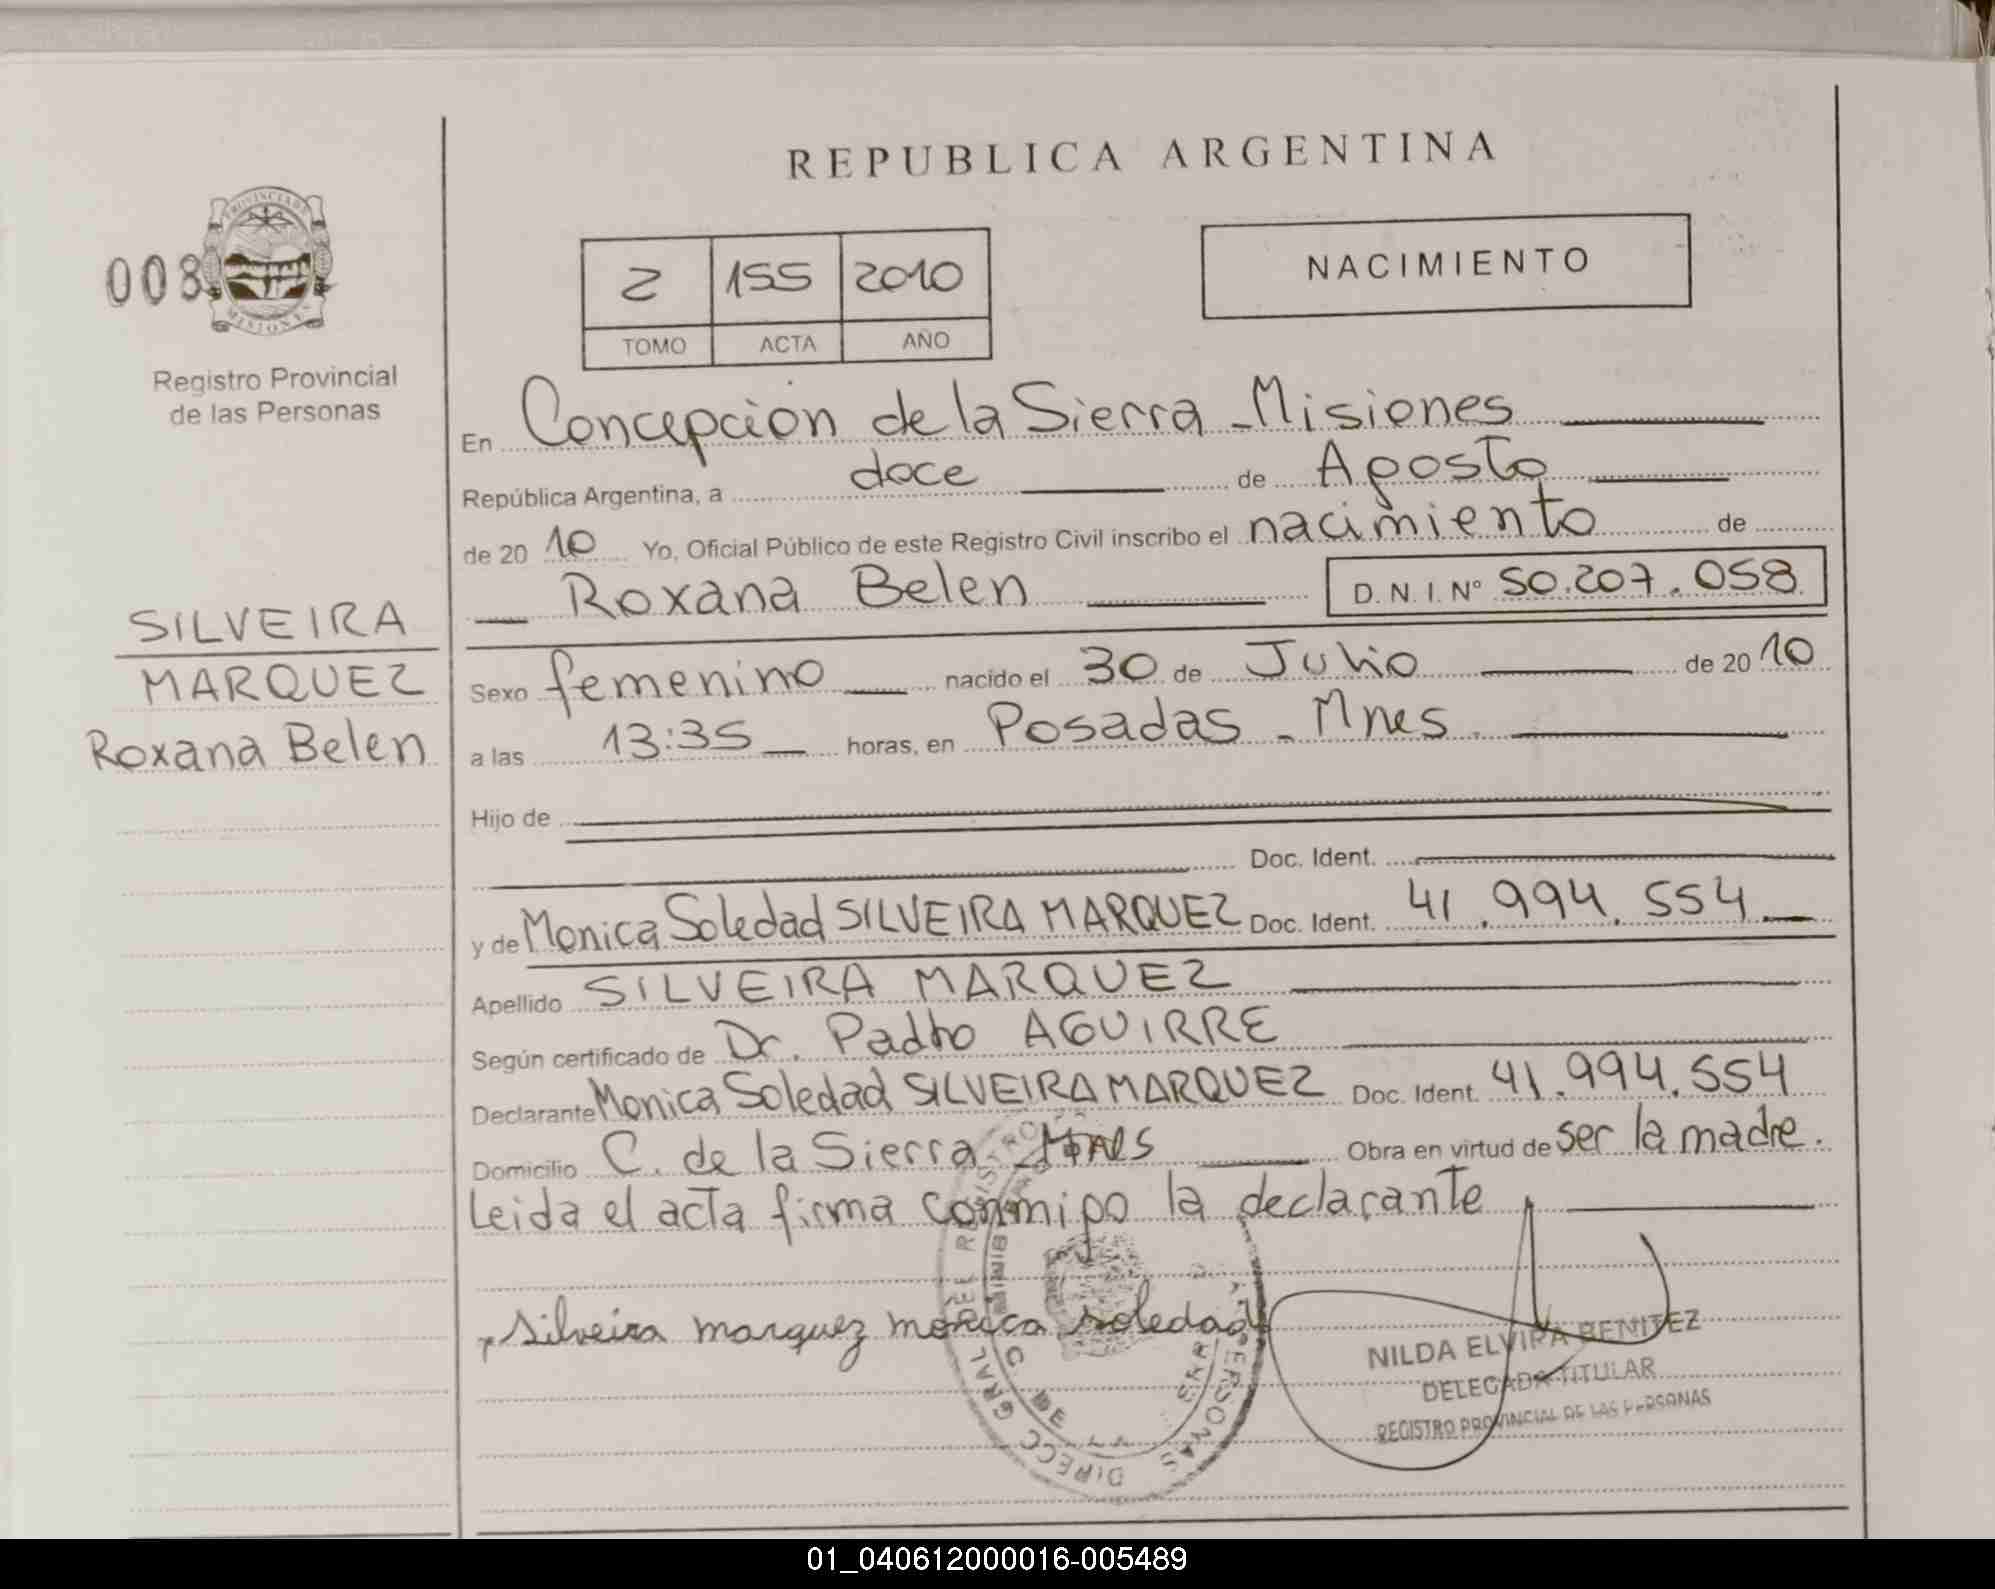 REPUBLICA ARGENTINA
008
PROVINCIA DE
MISIONES
Registro Provincial
de las Personas
2 155 2010
TOMO ACTA AÑO
NACIMIENTO
En Concepcion de la Sierra - Misiones
República Argentina, a doce de Agosto
de 20 10 Yo, Oficial Público de este Registro Civil inscribo el nacimiento de
Roxana Belen D.N.I. Nº 50.207.058
SILVEIRA
MARQUEZ
Roxana Belen
Sexo femenino nacido el 30 de Julio de 20 10
a las 13:35 horas, en Posadas - Mnes.
Hijo de
Doc. Ident.
y de Monica Soledad SILVEIRA MARQUEZ Doc. Ident. 41.994.554
Apellido SILVEIRA MARQUEZ
Según certificado de Dr. AGUIRRE
Declarante Monica Soledad SILVEIRA MARQUEZ Doc. Ident. 41.994.554
Domicilio C. de la Sierra - Mnes Obra en virtud de ser la madre.
Leida el acta firma conmigo la declarante
silveira marquez monica soledad
NILDA ELVIRA BENITEZ
DELEGADA TITULAR
REGISTRO PROVINCIAL DE LAS PERSONAS
01_040612000016-005489